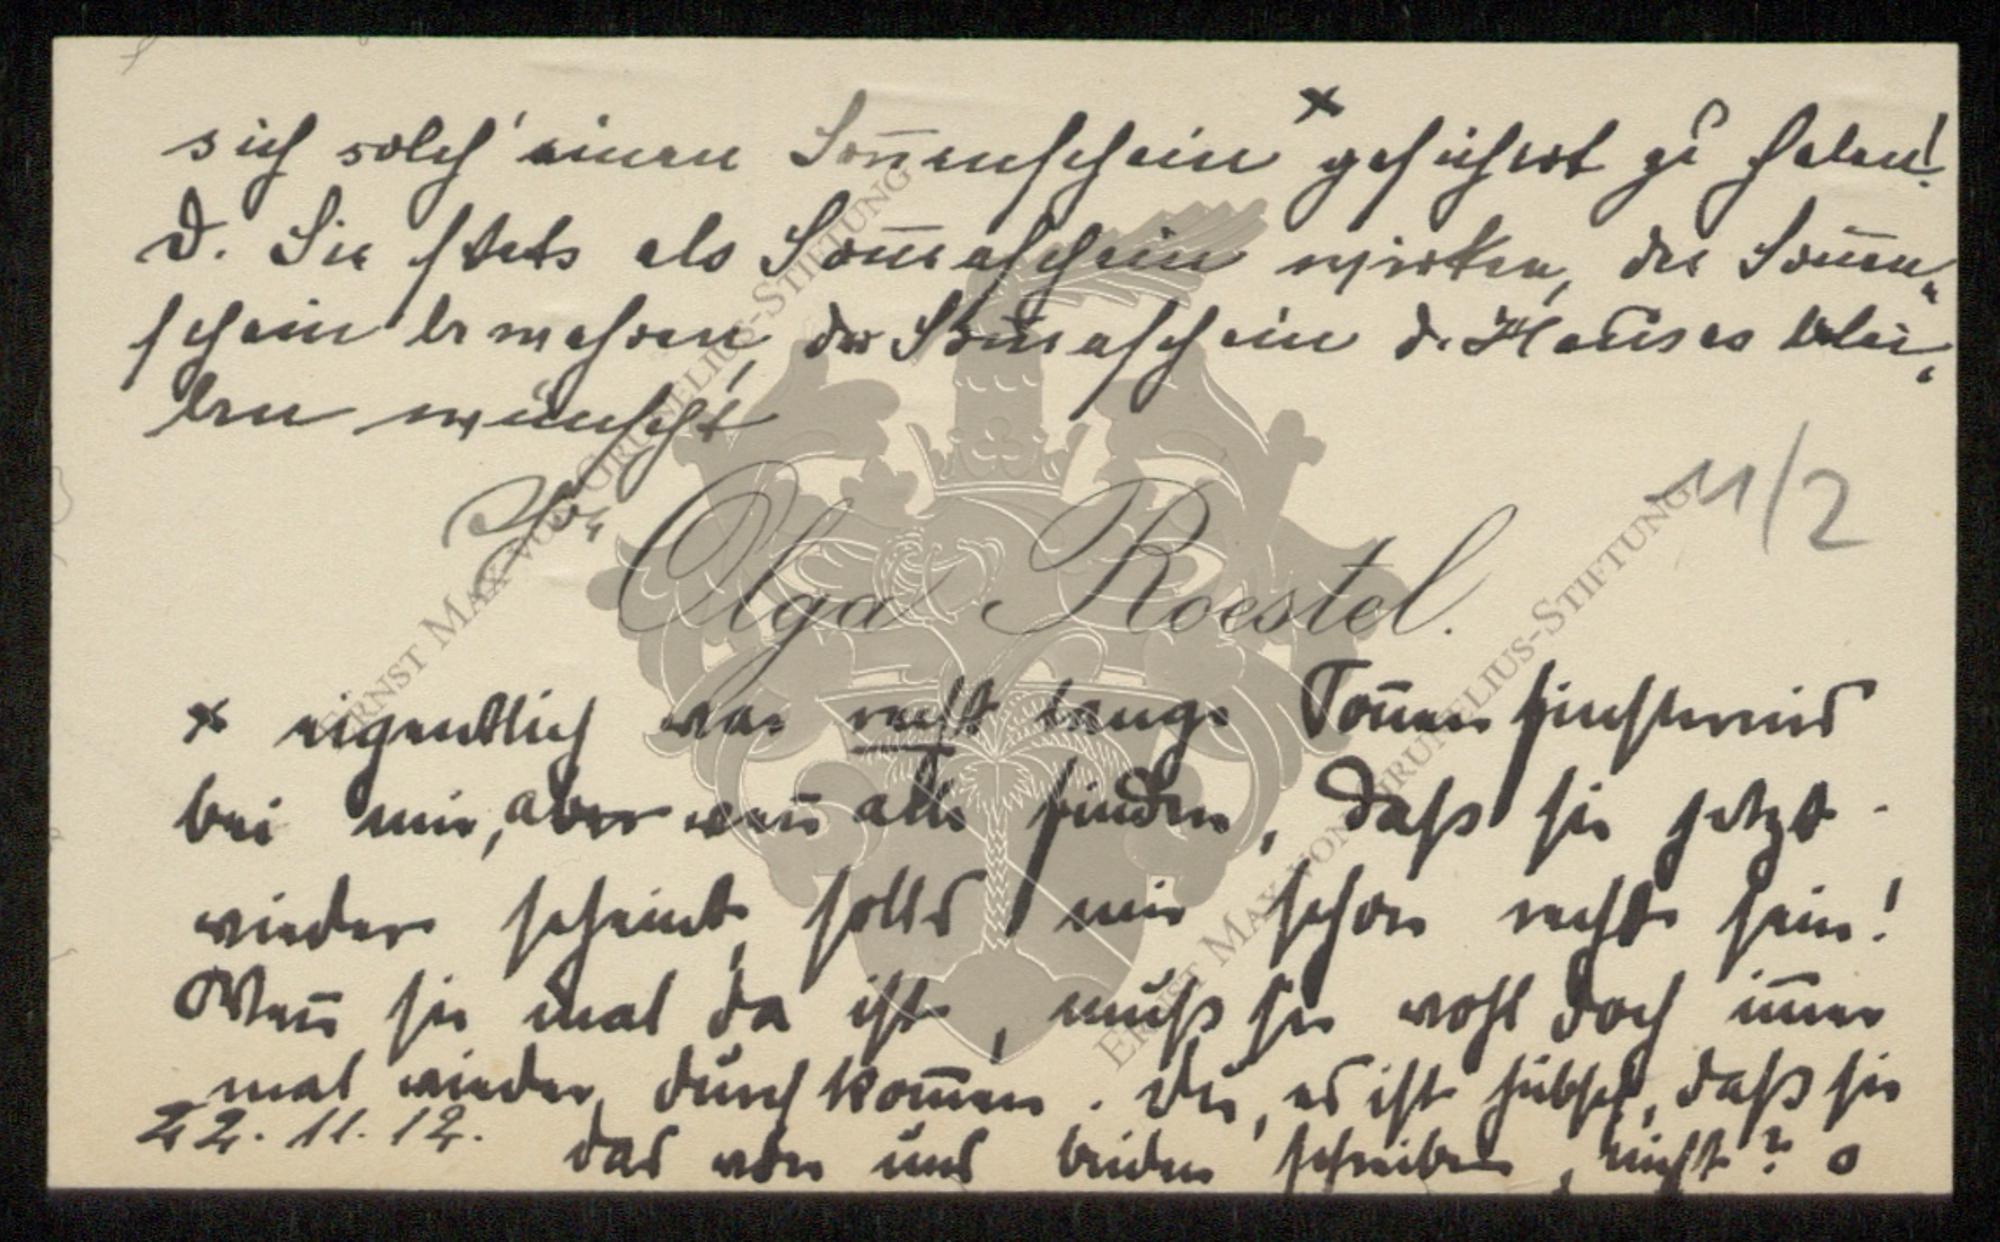 sich solch' einen Sonnenschein × gesichert zu haben!
D. Sie stets als Sonnenschein wirken, den Sonnen-
schein bewahren, der Sonnenschein d. Hauses blei-
ben wünscht
Ihre
Olga Roestel.
11/2
× eigentlich war recht lange Sonnenfinsternis
bei mir, aber wenn alle finden, daß sie jetzt
wieder scheint, solls mir schon recht sein!
Wenn sie mal da ist, muß sie wohl doch immer
mal wieder durchkommen. Du, es ist hübsch, daß sie
22.11.12. das von uns beiden schreiben, nicht? o
ERNST MAX VON GRUNELIUS-STIFTUNG
ERNST MAX VON GRUNELIUS-STIFTUNG